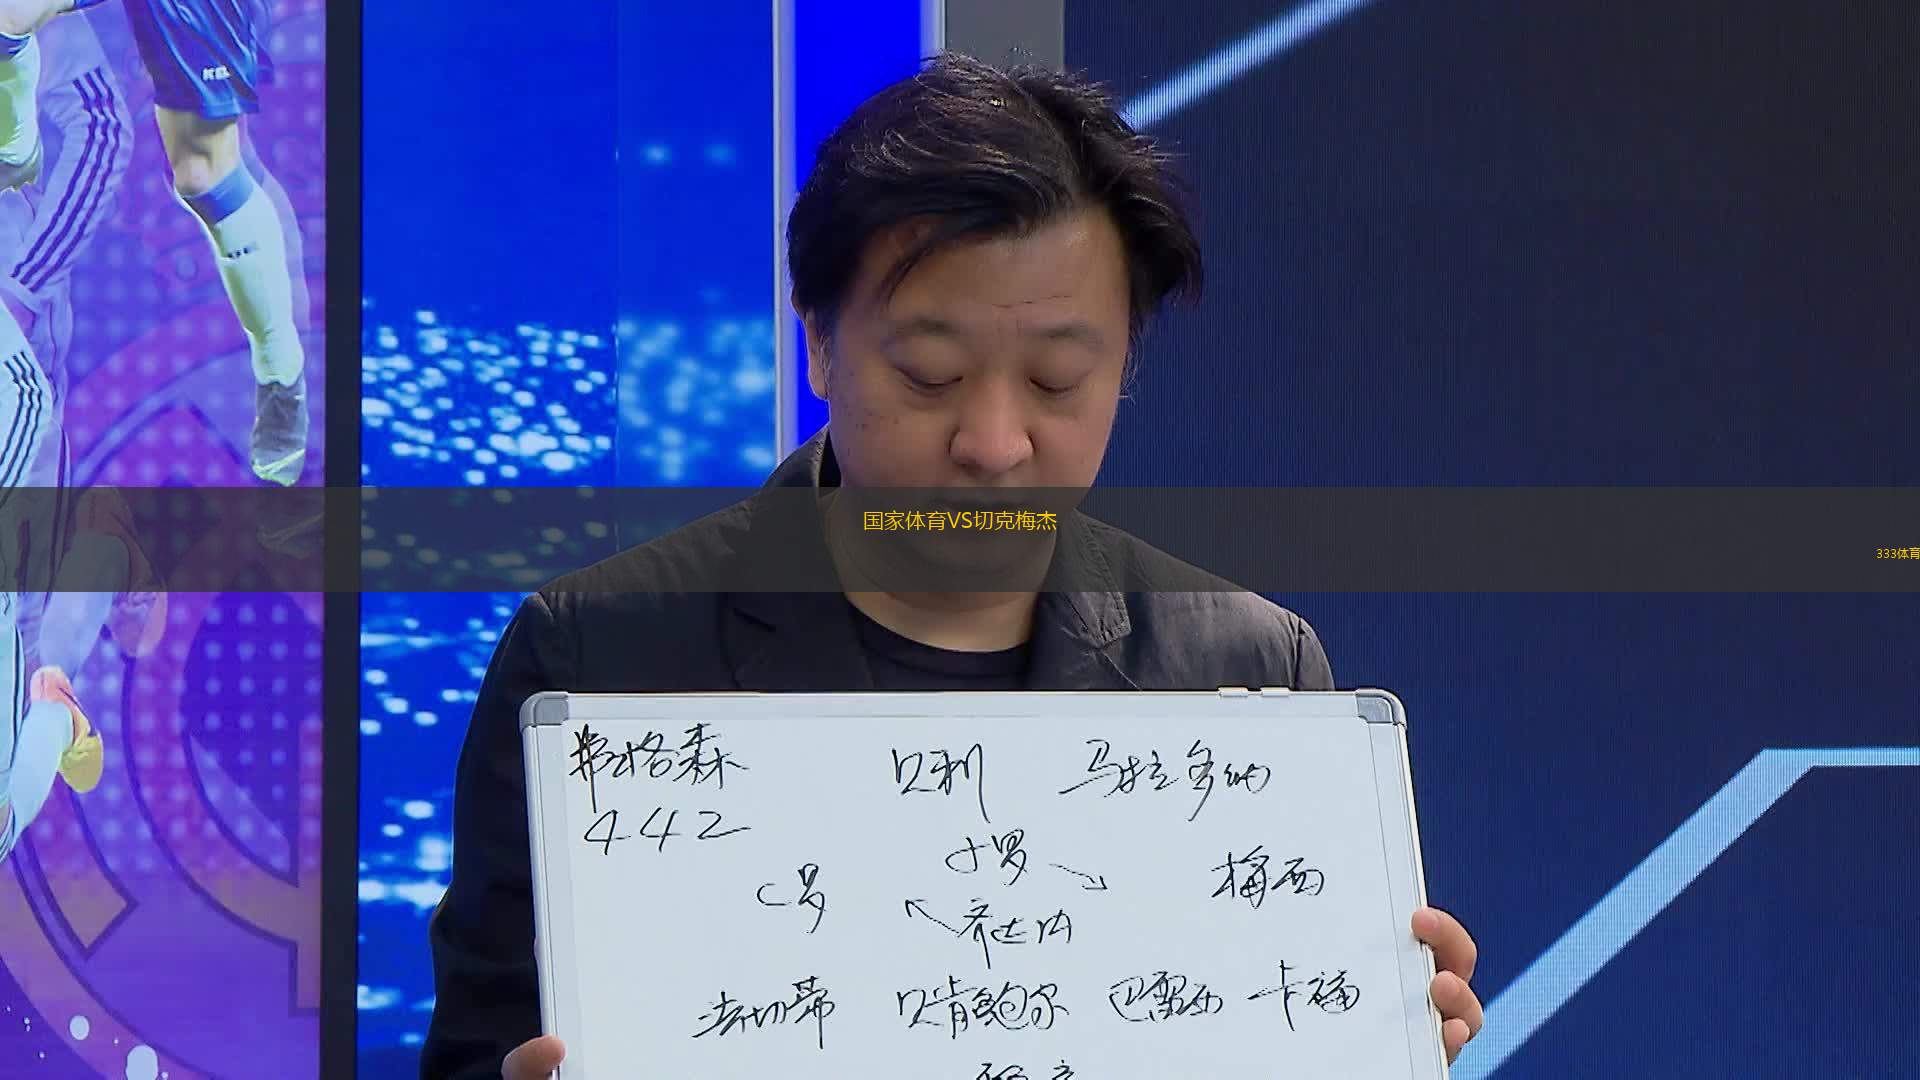 国家体育VS切克梅杰
333体育
弗格森 贝利 马拉多纳
442
小罗
C罗 梅西
齐达内
法切蒂 贝肯鲍尔 巴雷西 卡福